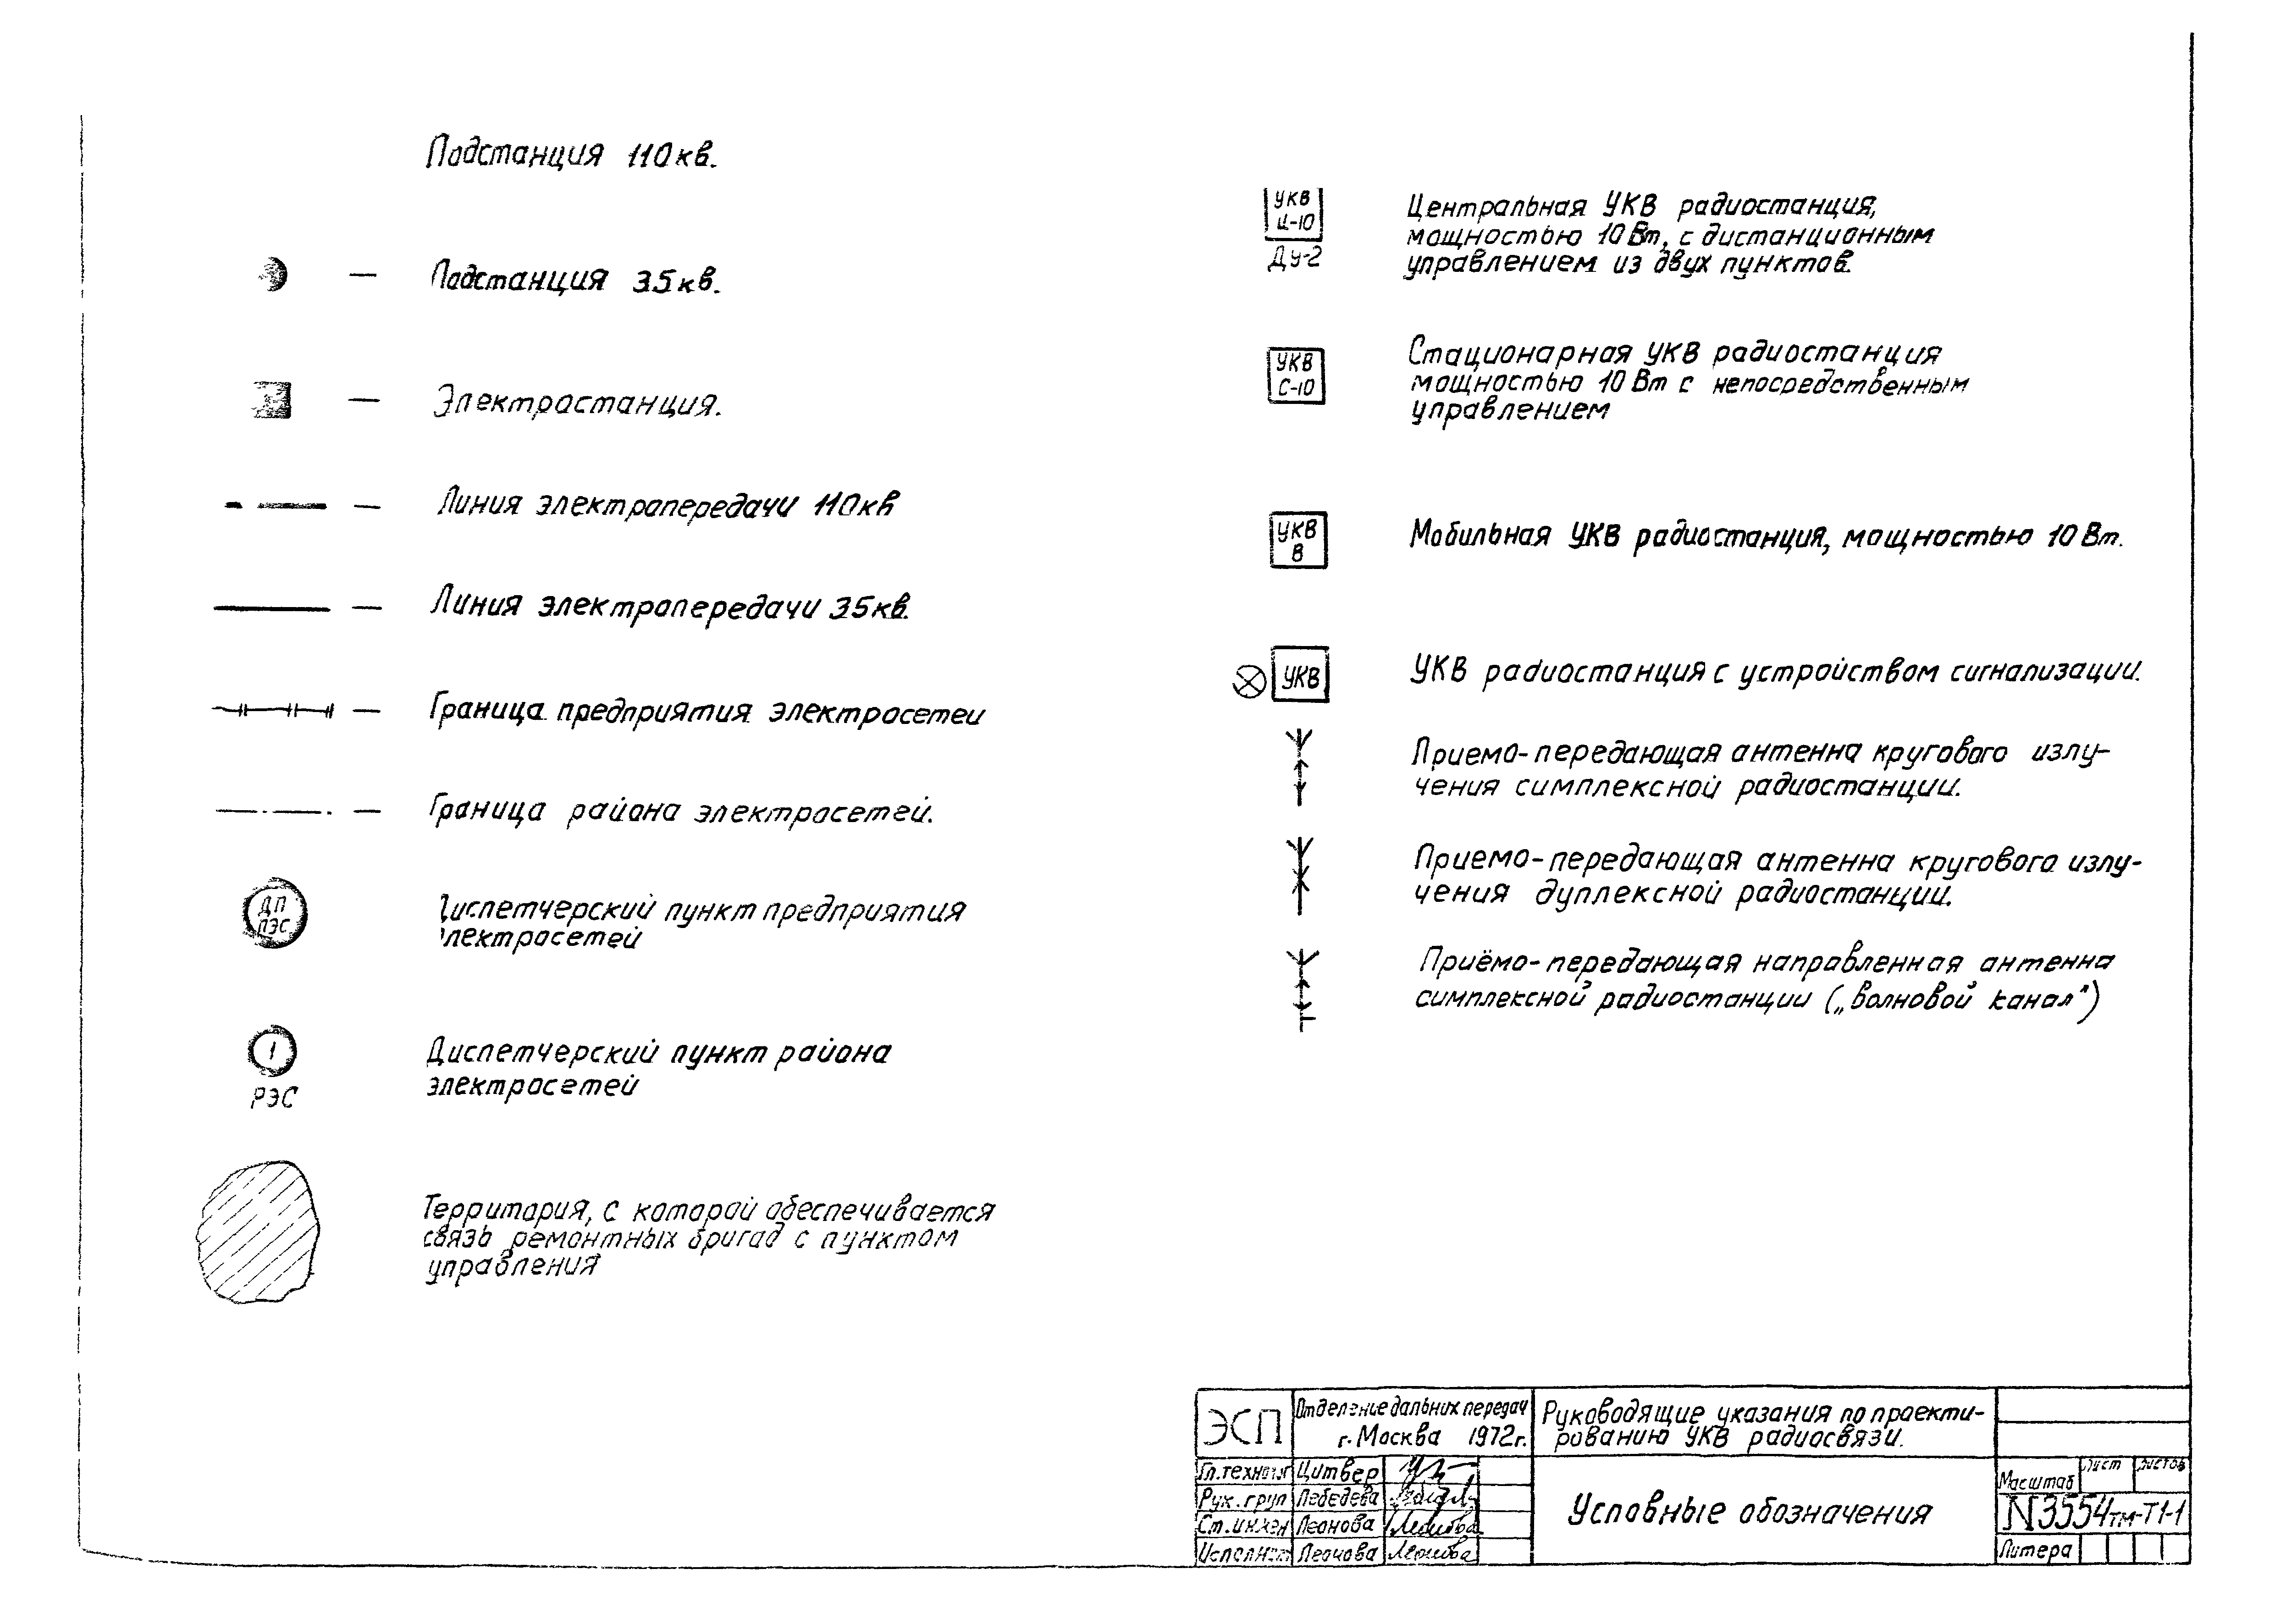 Подстанция 110кв.
Подстанция 35кв.
Электростанция.
Линия электропередачи 110кв
Линия электропередачи 35кв.
Граница предприятия электросетей
Граница района электросетей.
ДП
ПЭС
Диспетчерский пункт предприятия
электросетей
1
РЭС
Диспетчерский пункт района
электросетей
Территория, с которой обеспечивается
связь ремонтных бригад с пунктом
управления
УКВ
Ц-10
ДУ-2
Центральная УКВ радиостанция,
мощностью 10 Вт, с дистанционным
управлением из двух пунктов.
УКВ
С-10
Стационарная УКВ радиостанция
мощностью 10 Вт с непосредственным
управлением
УКВ
В
Мобильная УКВ радиостанция, мощностью 10 Вт.
УКВ
УКВ радиостанция с устройством сигнализации.
Приемо-передающая антенна кругового излу-
чения симплексной радиостанции.
Приемо-передающая антенна кругового излу-
чения дуплексной радиостанции.
Приёмо-передающая направленная антенна
симплексной радиостанции („волновой канал")
ЭСП
Отделение дальних передач
г. Москва 1972г.
Руководящие указания по проекти-
рованию УКВ радиосвязи.
Гл.технолг Цитвер
Рук. груп Лебедева
Ст. инжен Леонова
Исполнил Леонова Леонова
Условные обозначения
Масштаб Лист Листов
N3554тм-Т1-1
Литера